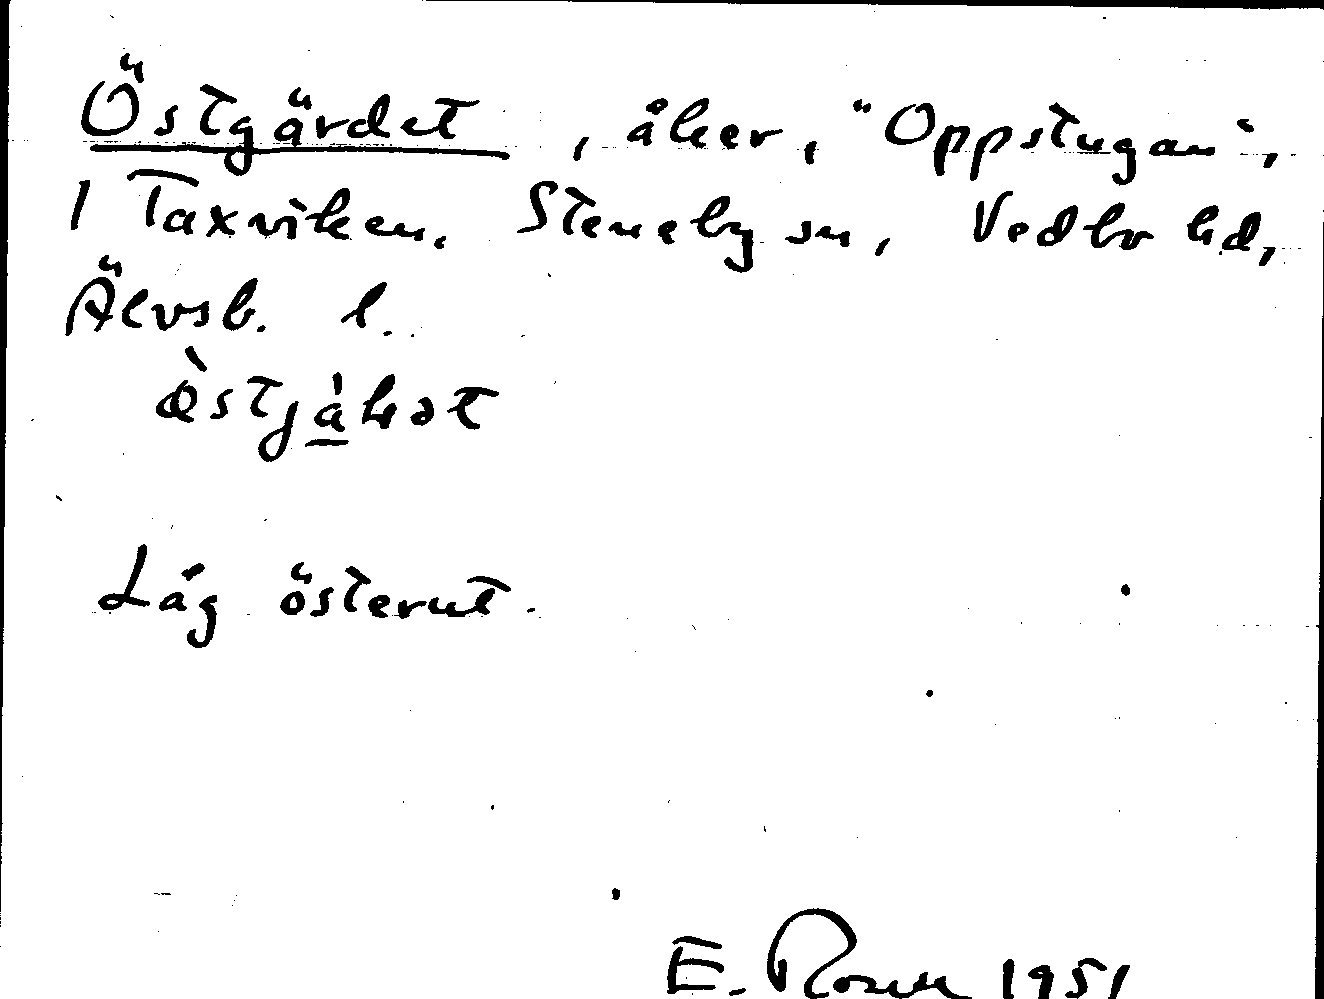 Östgärdet, åker, "Oppstugan",
1 Taxviken. Steneby sn, Vedbo hd,
Älvsb. l.
Låg österut.
E. Rosen 1951